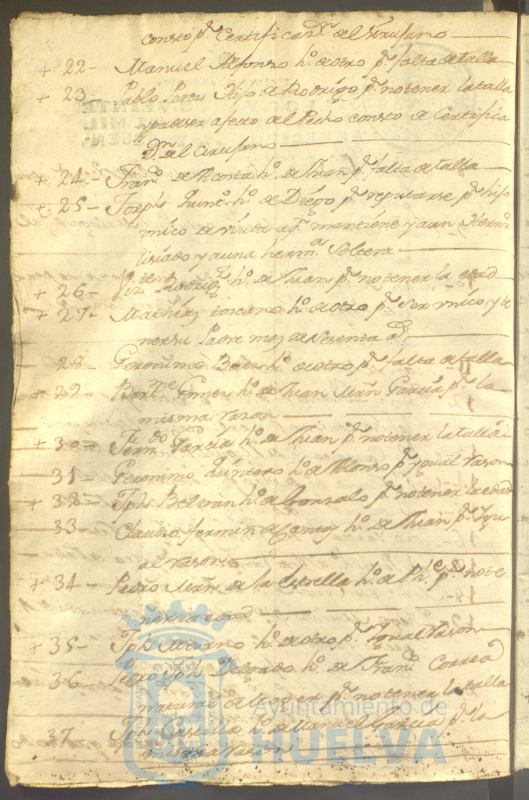 consto pr. Certificazn. del Sirujano
+ 22- Manuel Alfonso ho. de otro pr. falta de talla
+ 23- Pablo Perez hijo de Rodrigo pr. no tener la talla
y padeser afecto al Pecho consto de Certifica
Dn. del Cirujano
+ 24- Frano. de ho. de Juan pr. falta de talla
+ 25- Joseph ho. de Diego pr. reputarse pr. hijo
unico de viuda a qn. mantiene y a un
lisiado y a una hermna. Soltera
+ 26- Rodrigz. ho. de Juan pr. no tener la edad
+ 27- Mathias toscano ho. de otro pr. ser unico y te
ner su Padre mas de Sesenta as.
28- Geronimo Baes ho. de otro pr. falta de talla
+ 29- Barme. Gomes ho. de Juan Mrn. Garcia pr. la
misma rason
+ 30- Ferndo. Garcia ho. de Juan pr. no tener la talla
31- Geronimo Quintero ho. de Alonso pr. ygual rason
+ 32- Jph. Beltran ho. de Gonzalo pr. no tener la edad
33- Claudio fermin de Campos ho. de Juan pr. Igu
al rason
+ 34- Pedro Mrn. de la Estrella ho. de Phe. pr. no te
ner la edad
+ 35- Jph. Moreno ho. de otro pr. Igual rason
36- Pedro Jph. Delgado ho. de Frano. Correa
natural de pr. no tener la talla
37- Jph. Castilla ho. de Manuel Garcia pr. la
misma rason
Ayuntamiento de
HUELVA